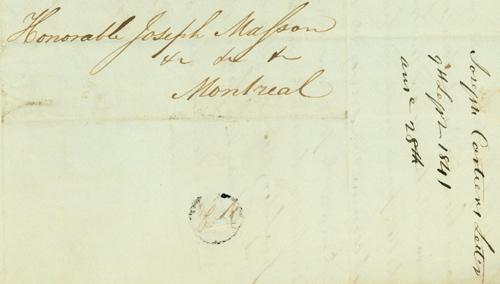 Honorable Joseph Masson
&c &c &c
Montreal
Joseph Cartier's Letter
9th Septr 1841
ansd 28th